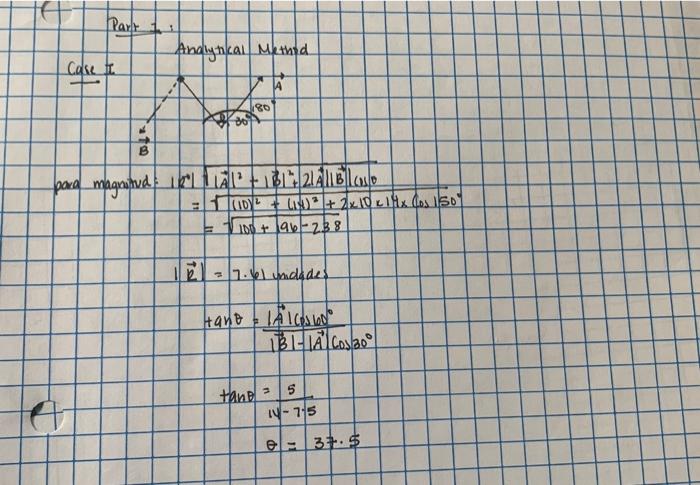 Part I:
Analytical Method
Case I
A⃗
180°
30°
B⃗
para magnitud: |R⃗| √|A⃗|² + |B⃗|² + 2|A⃗||B⃗| cos θ
= √(10)² + (14)² + 2x10x14x Cos 150°
= √100 + 196 - 238
|R⃗| = 7.61 unidades
tanθ = |A⃗| Cos 60°
|B⃗| - |A⃗| Cos 30°
tanθ = 5
14 - 7.5
θ = 37.5